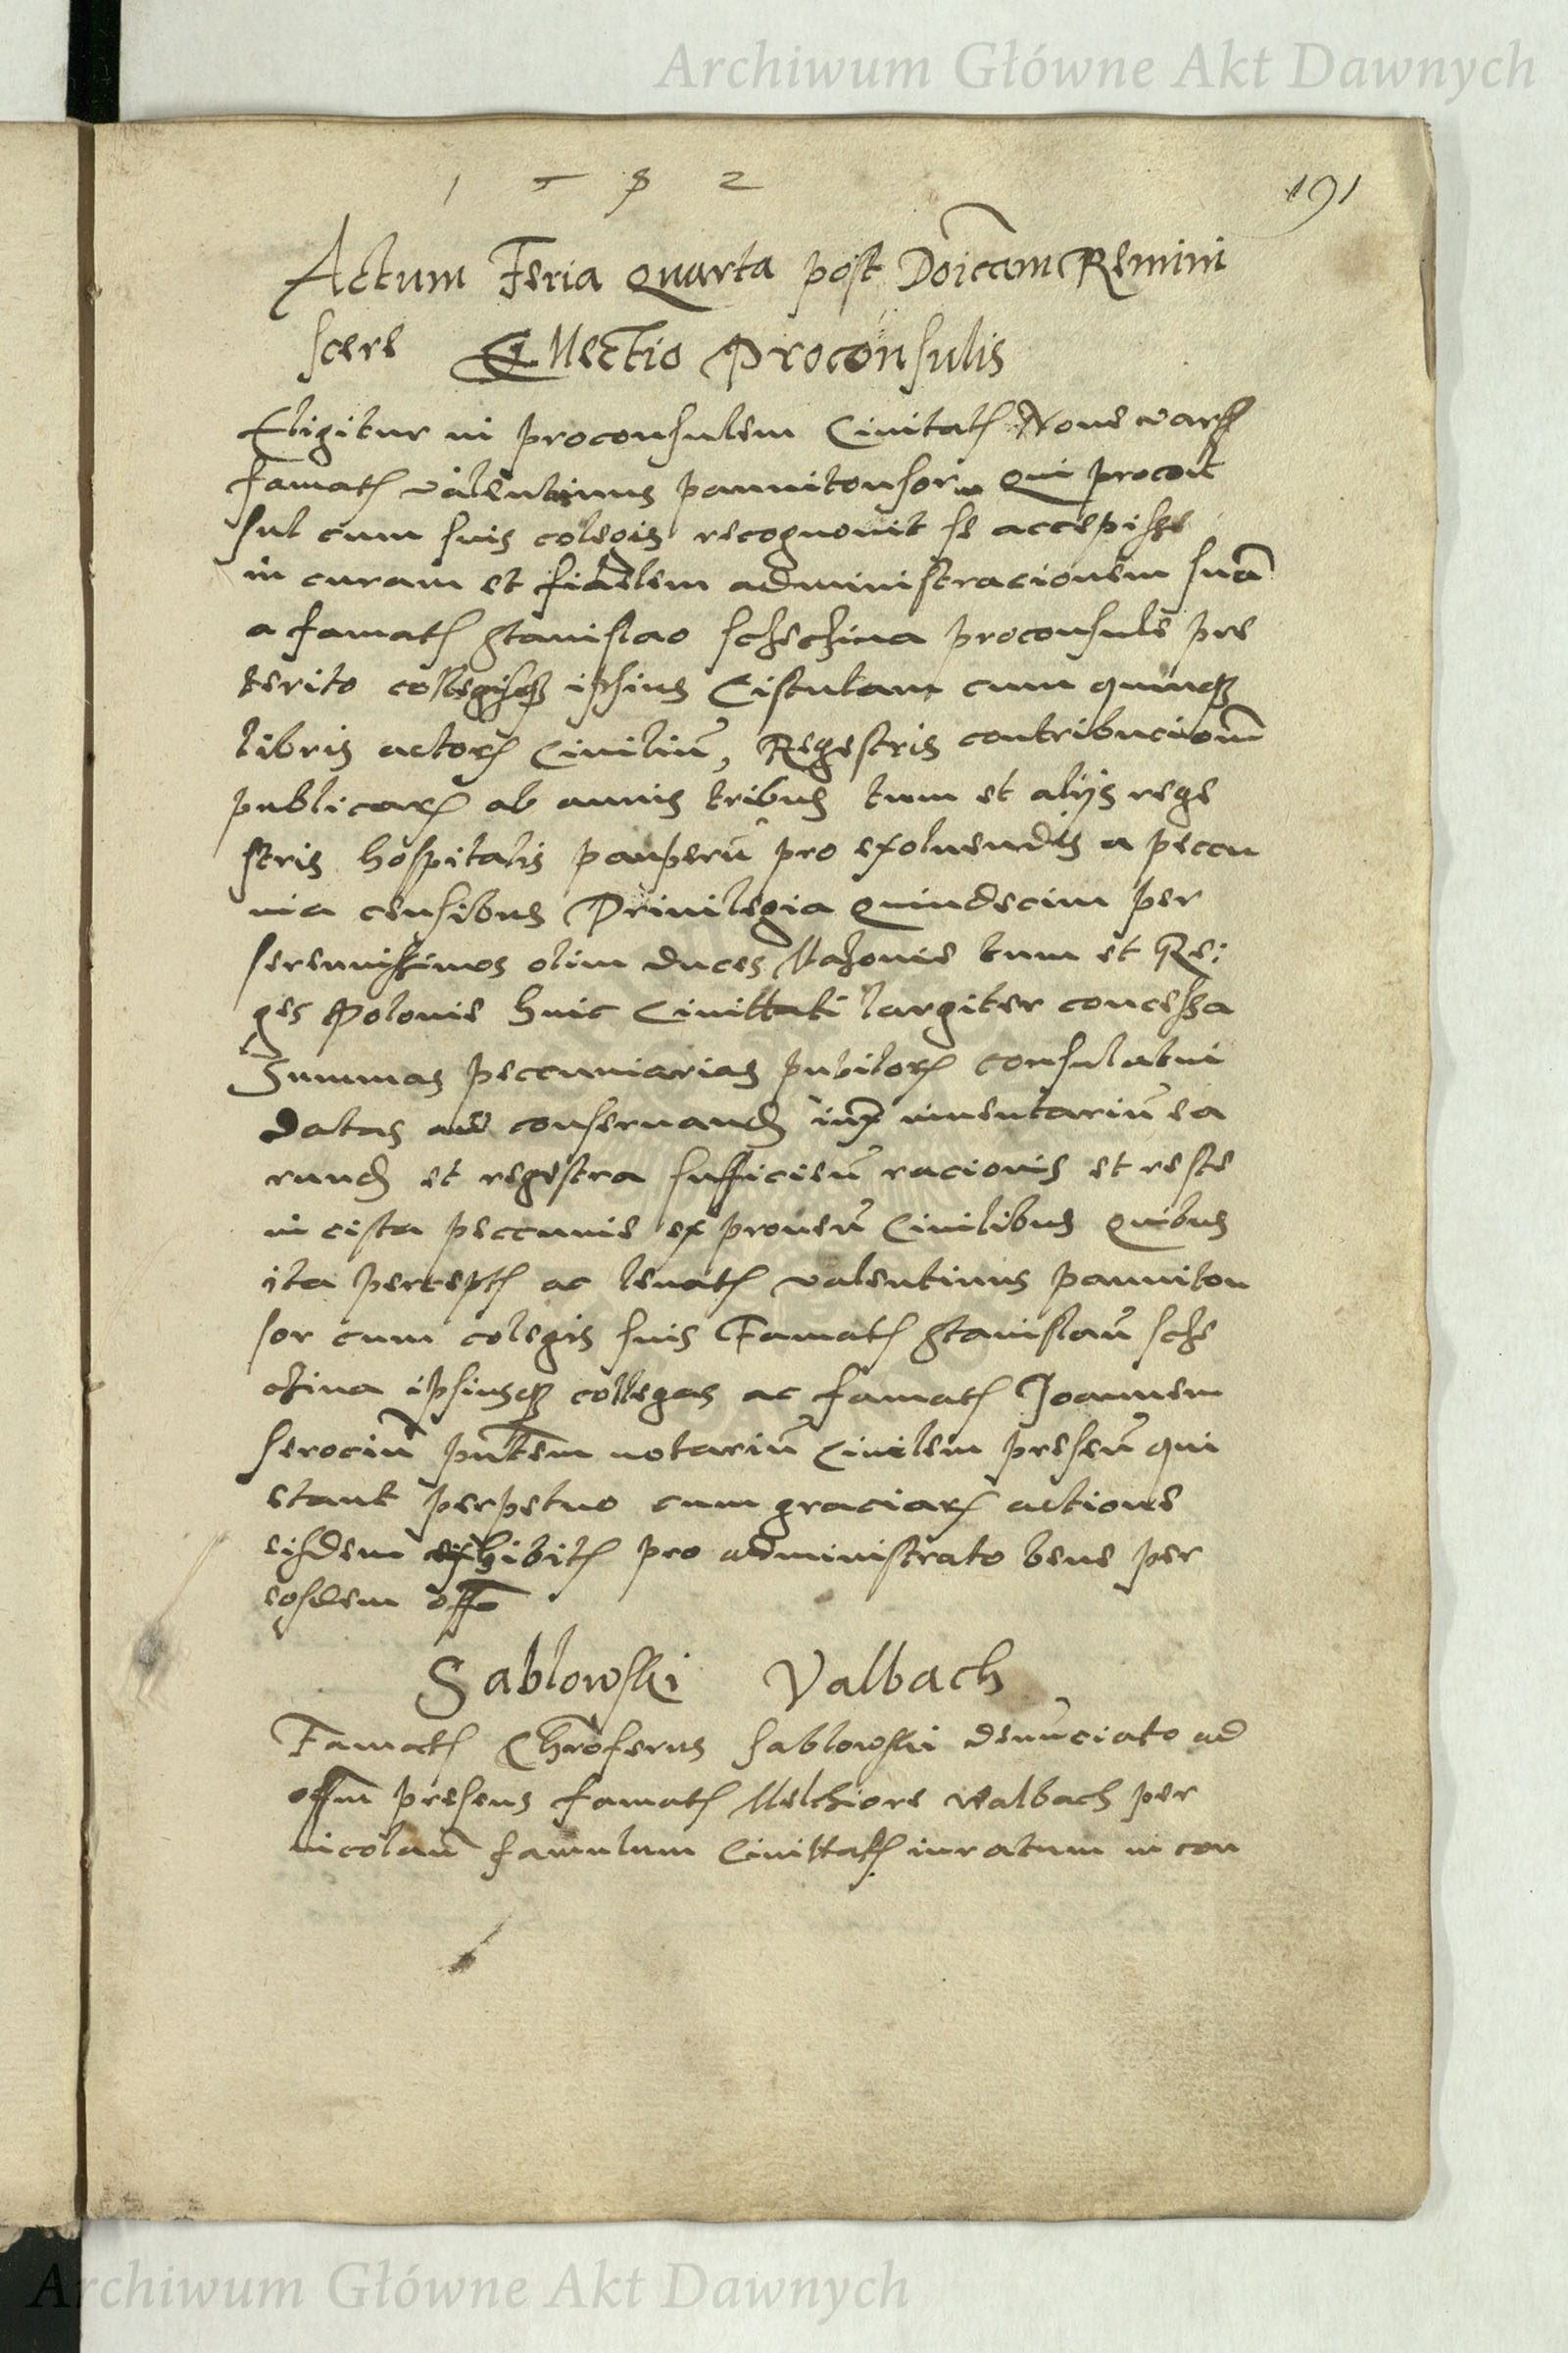 Archiwum Główne Akt Dawnych
1 5 8 2
191
Actum Feria Quarta post Doicam Remini
scere Ellectio Proconsulis
Eligitur in proconsulem Civitatis Nove Wars
famatus valentinus pannitonsor qui procon
sul cum suis colegis recognovit se accepisse
in curam et fidelem administracionem suã
a famato Stanislao proconsule pre
terito ipsius Cistulam cum quinque
libris actorum Civiliũ, Regestris contribucionũ
publicarum ab annis tribus tum et alijs rege
stris hospitalis pauperũ pro exolvendis a peccu
nia censibus Privilegia quindecim per
serennissimos olim duces Mazovie tum et Re:
ges Polonie huic Civittati largiter concessa
Summas peccuniarias pupilorum consulatui
datas ad conservand iux inventariũ ea
rund et regestra sufficien racionis et reste
in cista peccunie ex proven Civilibus quibus
ita perceptis ac levatis valentinus panniton
sor cum colegis suis Famatum Stanislaũ
ipsiusque collegas ac famatum Joannem
serociũ pntem notariũ Civilem presen qui
etant perpetuo cum graciarum actione
eisdem exhibitis pro administrato bene per
eosdem offo
Sablowski Valbach
Famatus Chrõferus sablowski denũciato ad
offm presens famato Melchiore valbach per
nicolaũ famulum Civittatis iuratum in con
Archiwum Główne Akt Dawnych